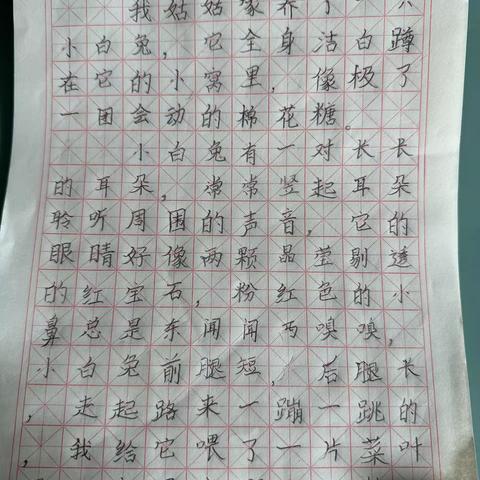 我姑姑家养了一只
小白兔，它全身洁白蹲
在它的小窝里，像极了
一团会动的棉花糖。
小白兔有一对长长
的耳朵，常常竖起耳朵
聆听周围的声音，它的
眼睛好像两颗晶莹剔透
的红宝石，粉红色的小
鼻总是东闻闻丐嗅嗅，
小白兔前腿短，后腿长
，走起路来一蹦一跳的
，我给它喂了一片菜叶